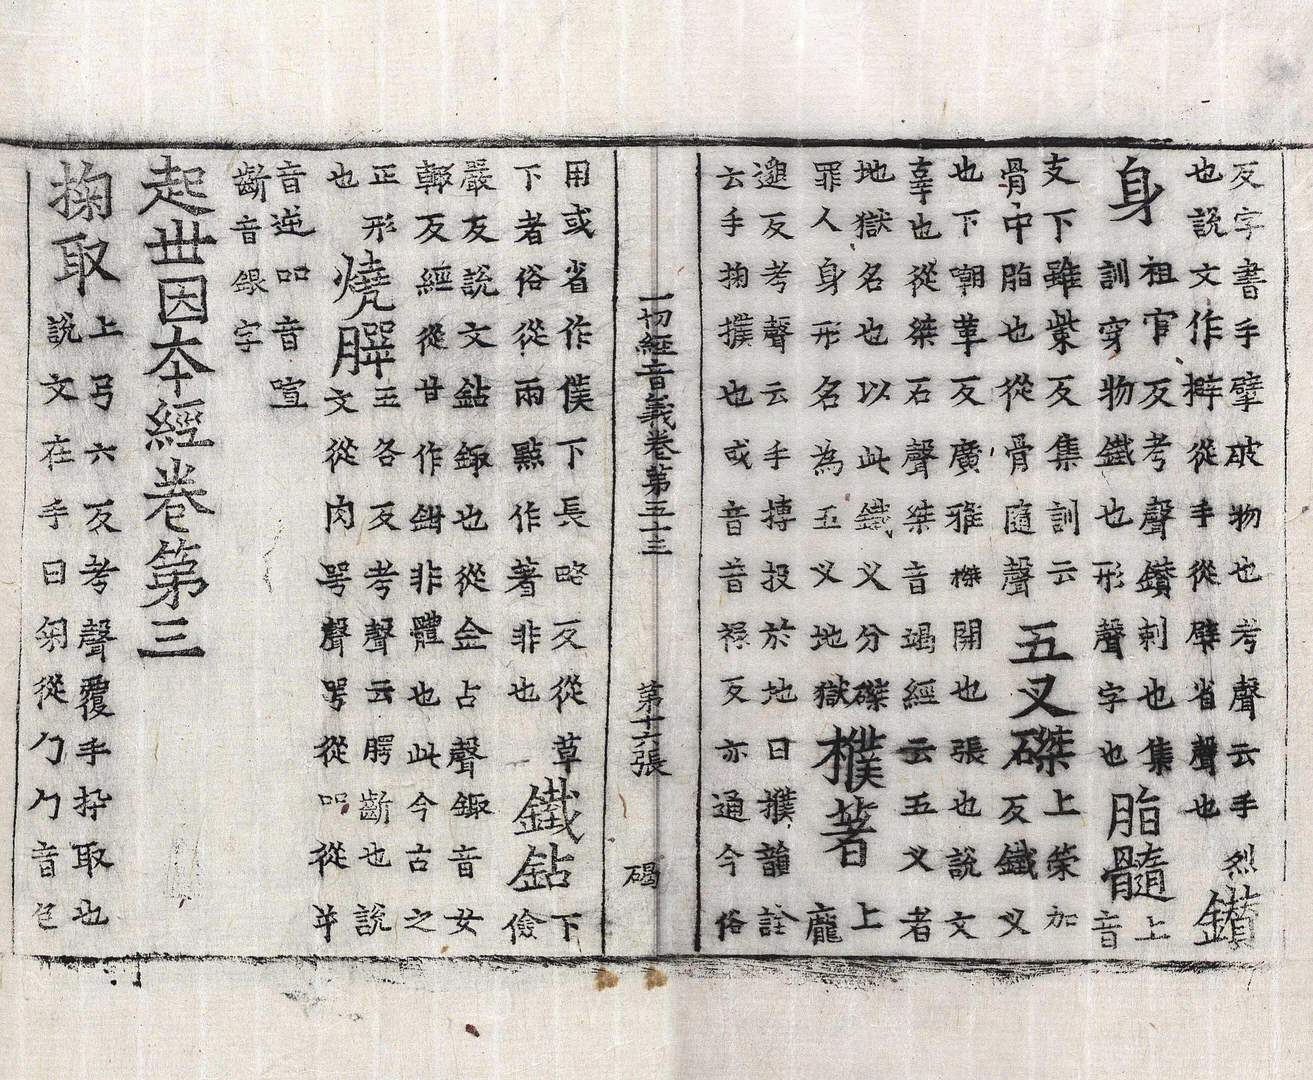 反字書手擘破物也考聲云手烈
也說文作擗從手從壁省聲也
鑽
身
祖官反考聲鑽刺也集
訓穿物鐵也形聲字也
脂髓
上
音
支下雖紫反集訓云
骨中脂也從骨隨聲
五叉磔
上榮加
反鐵义
也下嘲革反廣雅磔開也張也說文
辜也從桀石聲桀音竭經云五义者
地獄名也以此鐵义分磔
罪人身形名為五义地獄
撲著
上
龐
邈反考聲云手摶投於地曰撲韻詮
云手掬撲也或音音祿反亦通今俗
一切經音義卷第五十三
第十六張
碣
用或省作僕下長略反從草
下者俗從兩點作著非也
鐵鉆
下
儉
嚴反說文鉆鋷也從金占聲鋷音女
輙反經從甘作鉗非體也此今古之
正形
也
燒腭
五各反考聲云腭齗也說
文從肉咢聲咢從吅從屰
音逆吅音喧
齗音銀字
起世因本經卷第三
掬取
上弓六反考聲覆手扲取也
說文在手曰匊從勹勹音包